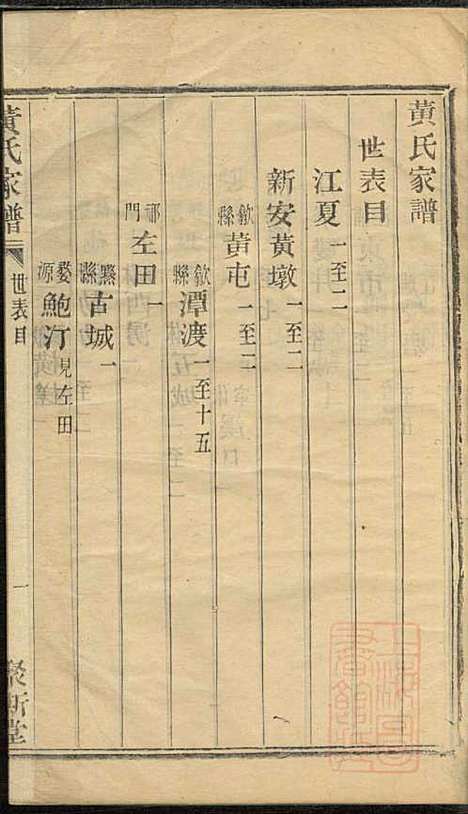 黃氏家譜
世表目
江夏 一至二
新安黃墩 一至二
歙縣 黃屯 一至二
歙縣 潭渡 一至十五
祁門 左田 一
黟縣 古城 一
婺源 鮑汀 見左田
黃氏家譜 世表目 一